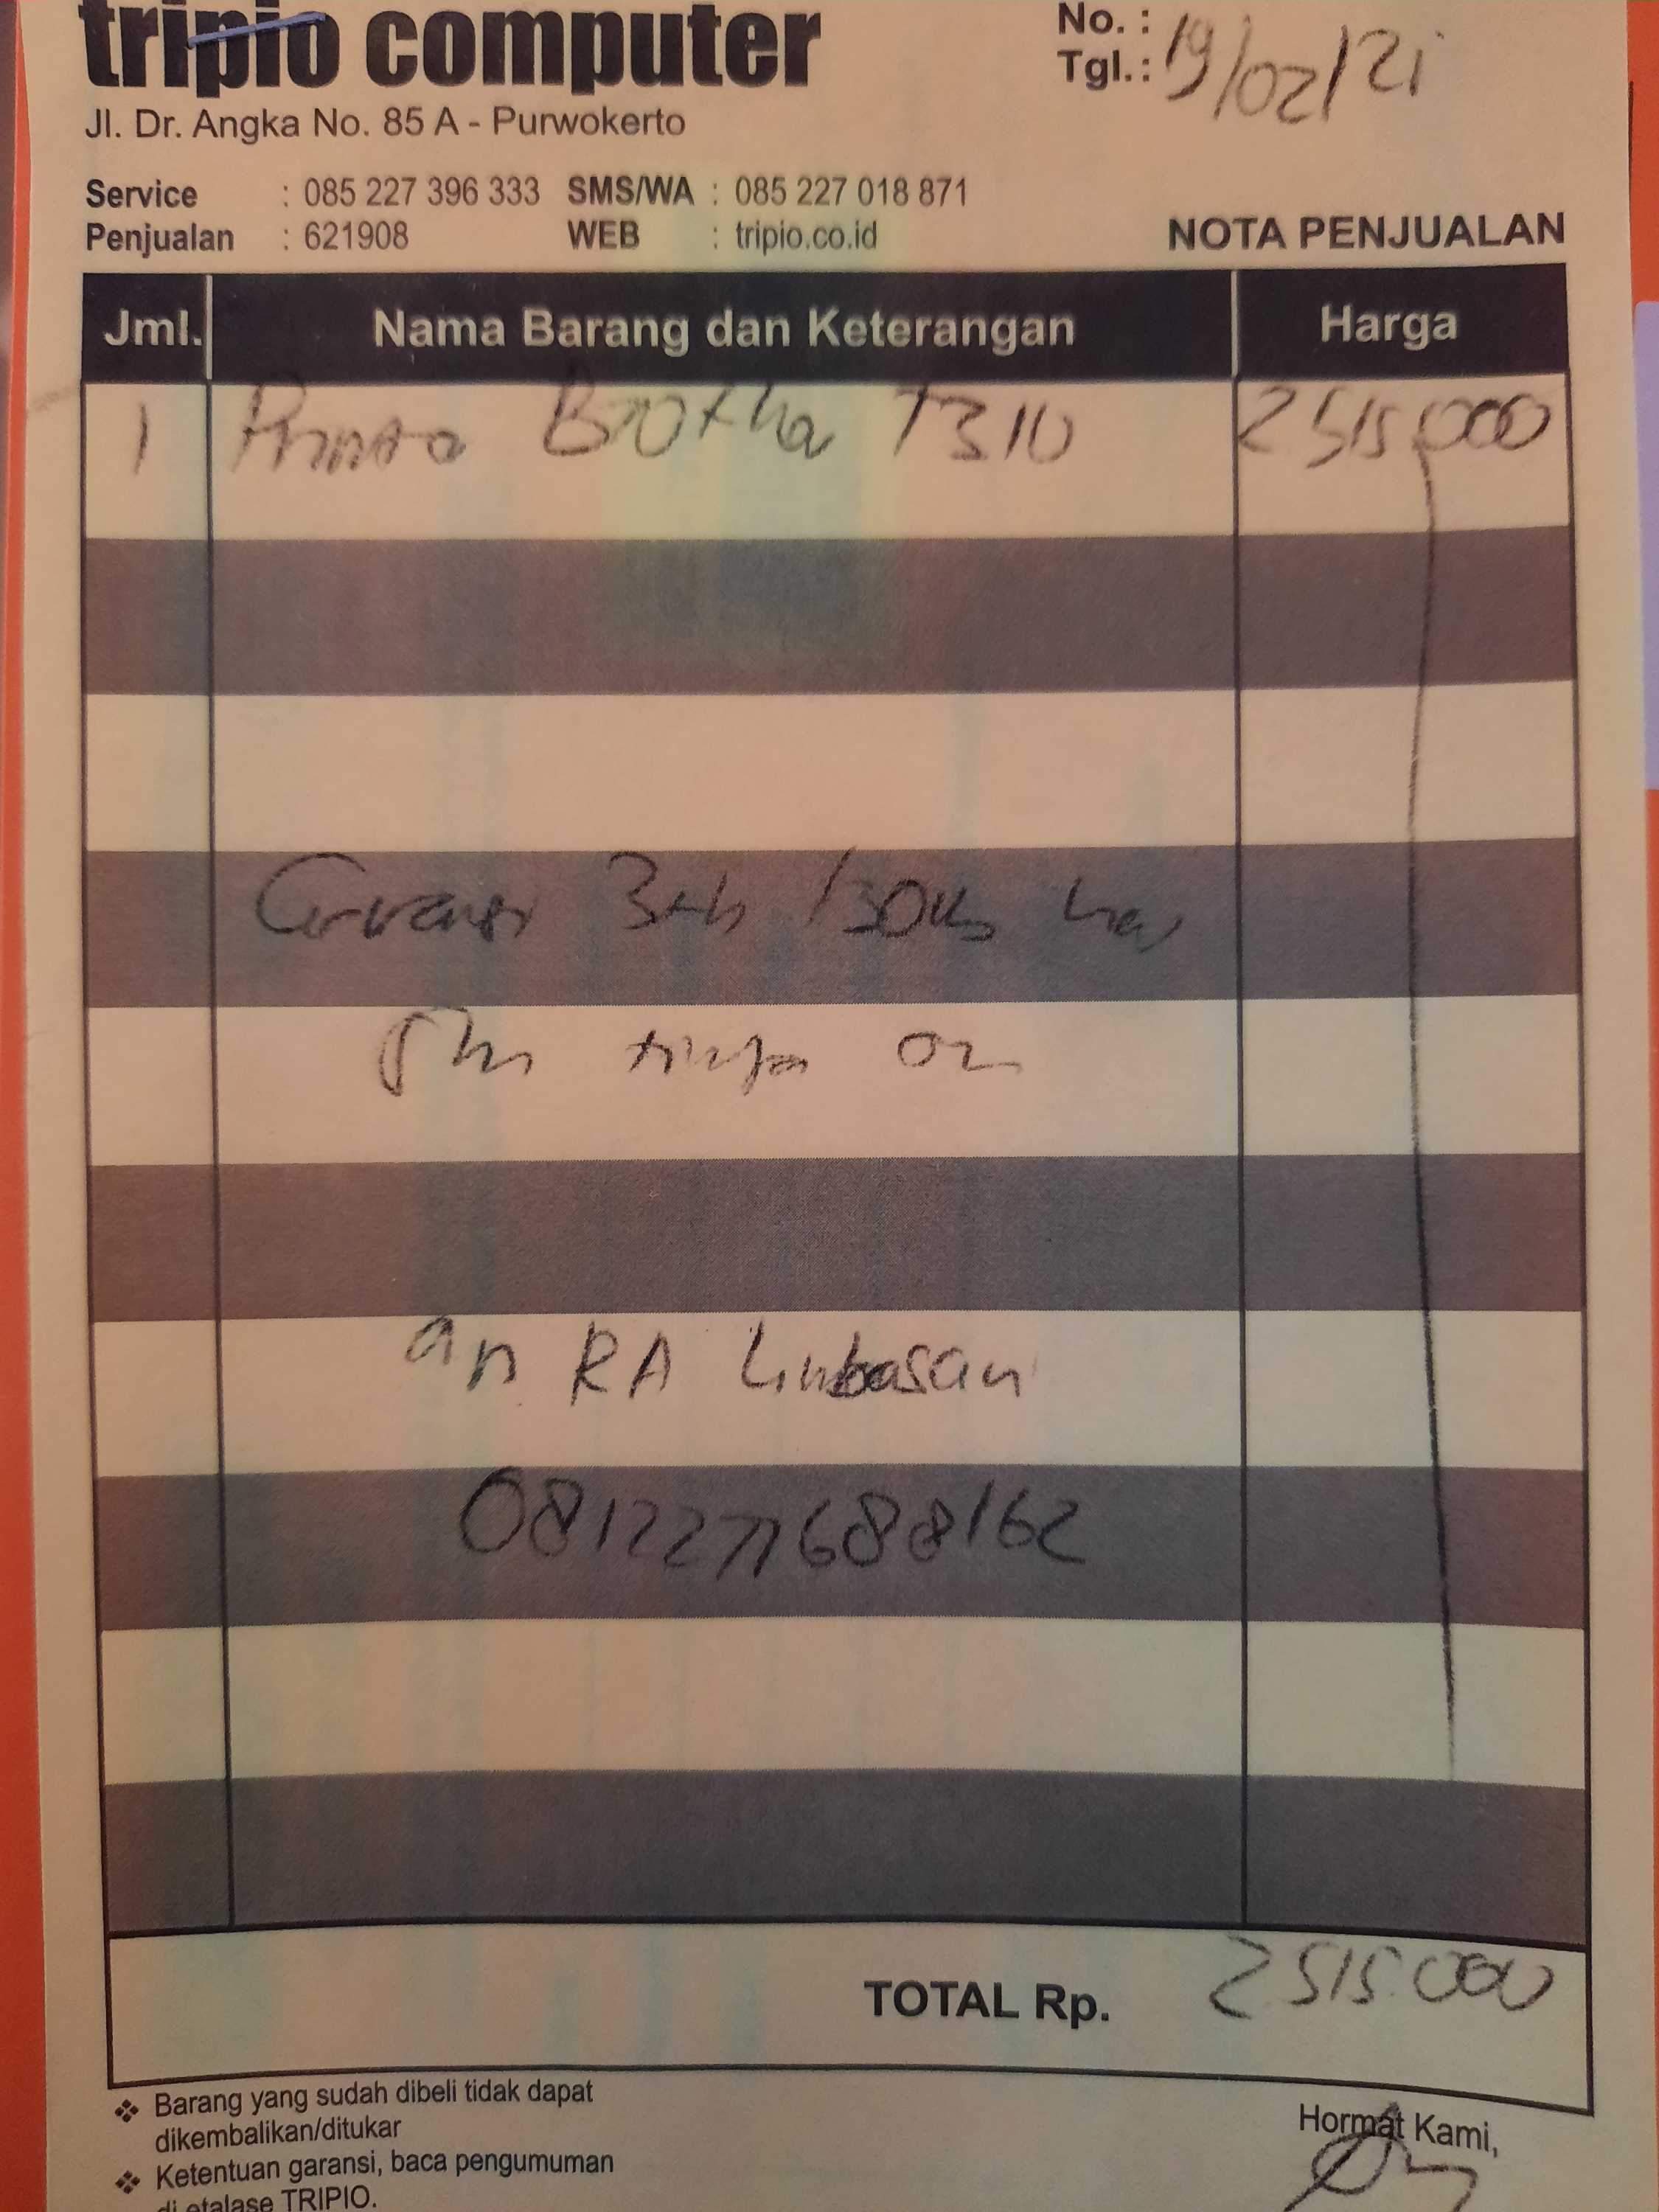 tripio computer
No. :
Tgl. : 19/02/21
Jl. Dr. Angka No. 85 A - Purwokerto
Service : 085 227 396 333 SMS/WA : 085 227 018 871
Penjualan : 621908 WEB : tripio.co.id
NOTA PENJUALAN
Jml. Nama Barang dan Keterangan Harga
1 Printer Brother T310 2.515.000
Garansi 3th /30rb
an RA Limbasan
TOTAL Rp. 2.515.000
❖ Barang yang sudah dibeli tidak dapat
dikembalikan/ditukar
❖ Ketentuan garansi, baca pengumuman
di etalase TRIPIO.
Hormat Kami,